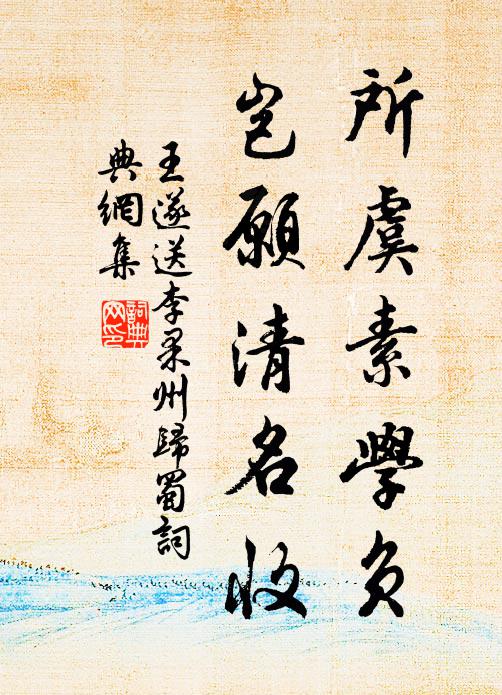 所虞素學負
豈願清名收
王遂送李果州歸蜀詞
典網集
詞典
网印